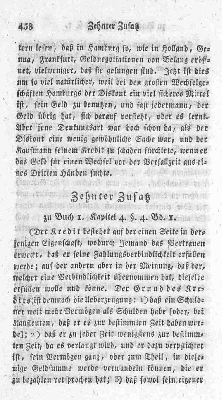 438 Zehnter Zusatz
tern lesen, daß in Hamburg so, wie in Holland, Ge-
nua, Frankfurt, Geldnegotiationen von Belang eröff-
net, vielweniger, daß sie gefunden sind. Jetzt ist dies
um so viel natürlicher, weil bei den großen Wechselge-
schäften Hamburgs der Diskont ein viel sicheres Mittel
ist, sein Geld zu nutzen, und ein jeder, der dort
Geld übrig hat, sich darauf versteht, oder es lernt.
Aber jene Denkungsart war doch schon da, als der
Diskont eine wenig gewöhnliche Sache war, und der
Kaufmann seinem Kredit zu schaden fürchtete, wenn er
das Geld für einen Wechsel vor der Verfallzeit aus ei-
nes Dritten Händen suchte.
Zehnter Zusatz
zu Buch 1. Kapitel 4. §. 4. Bd. 1.
Der Kredit bestehet auf der einen Seite in der-
jenigen Eigenschaft, wodurch Jemand das Vertrauen
erweckt, daß er seine Zahlungsverbindlichkeit erfüllen
werde; auf der andern aber in der Meinung, daß der,
welcher eine Verbindlichkeit übernommen hat, dieselbe
erfüllen wolle und könne. Der Grund des Kre-
dits ist demnach die Ueberzeugung: 1) daß ein Schuld-
ner weit mehr Vermögen als Schulden habe (oder, bei
Renten, daß er es zur bestimmten Zeit haben wer-
de); 2) daß er zu jeder Zeit wenigstens zur bestimm-
ten Zeit, da es verlangt wird, und er dazu verpflichtet
ist, sein Vermögen ganz, oder zum Theil, in diejeni-
ge Geldsumme werde verwandeln können, die er
zu bezahlen versprochen hat; 3) daß sowol sein eigener